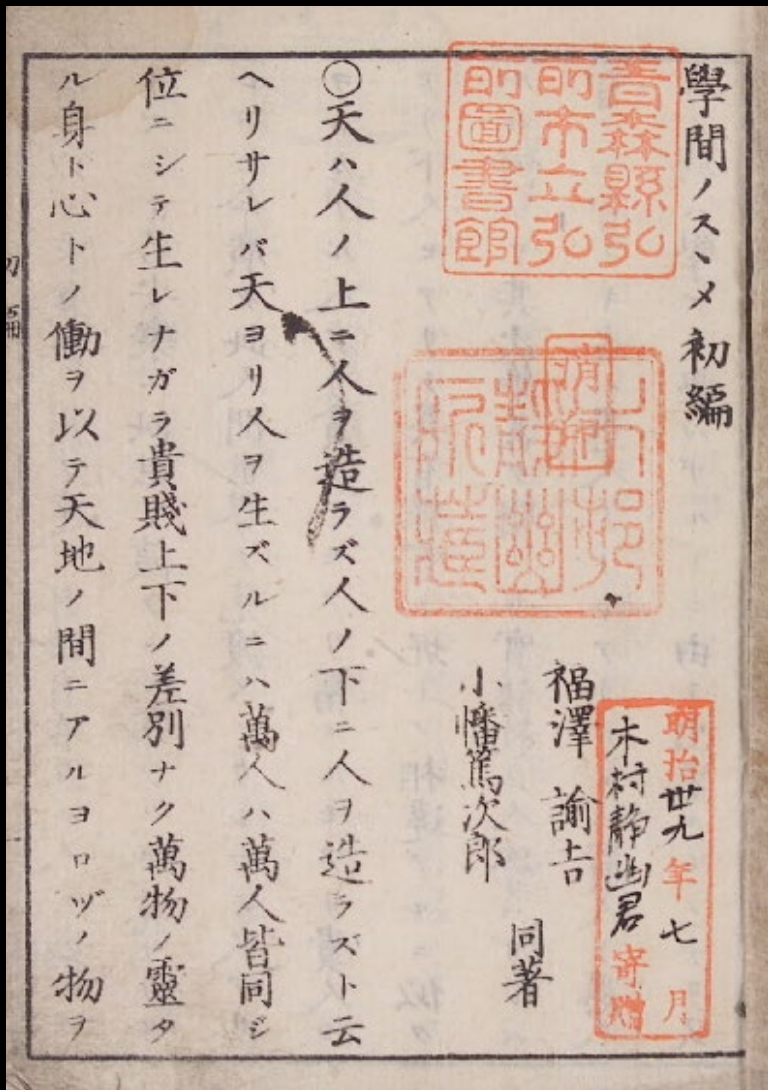 學問ノスヽメ 初編
青森縣弘
前市立弘
前圖書館
明治卅九年七月
木村靜幽君寄贈
福澤諭吉
小幡篤次郎
同著
〇天ハ人ノ上ニ人ヲ造ラズ人ノ下ニ人ヲ造ラズト云
ヘリサレバ天ヨリ人ヲ生ズルニハ萬人ハ萬人皆同ジ
位ニシテ生レナガラ貴賤上下ノ差別ナク萬物ノ靈タ
ル身ト心トノ働ヲ以テ天地ノ間ニアルヨロヅノ物ヲ